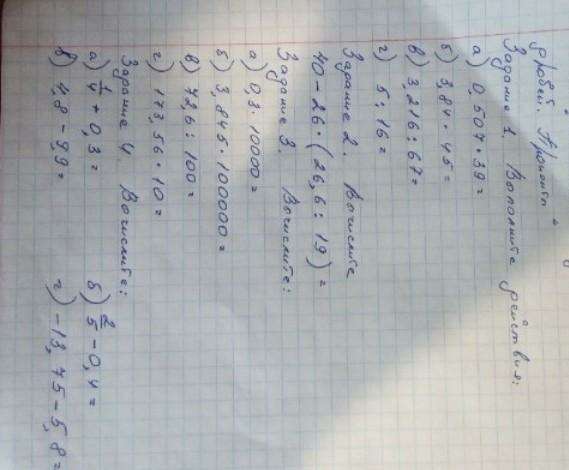 дробей. Проценты"
Задание 1. Выполните действия:
а) 0,507 · 39 =
б) 3,84 · 45 =
в) 3,216 : 67 =
г) 5 : 16 =
Задание 2. Вычислите
40 - 26 · (26,6 : 19) =
Задание 3. Вычислите:
а) 0,3 · 10000 =
б) 3,845 · 100000 =
в) 72,6 : 100 =
г) 173,56 · 10 =
Задание 4. Вычислите:
а) 1/4 + 0,3 = б) 2/5 - 0,4 =
в) 4,8 - 9,9 = г) -13,75 - 5,8 =